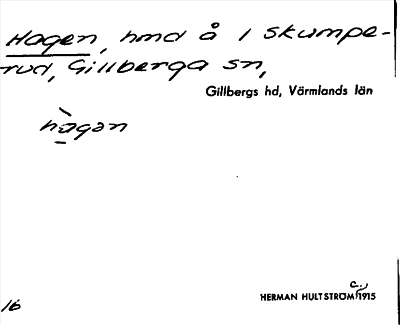 Hagen, hmd å 1 Skumpe-
rud, Gillberga sn,
Gillbergs hd, Värmlands län
hàgan
HERMAN HULTSTRÖM c. 1915
16